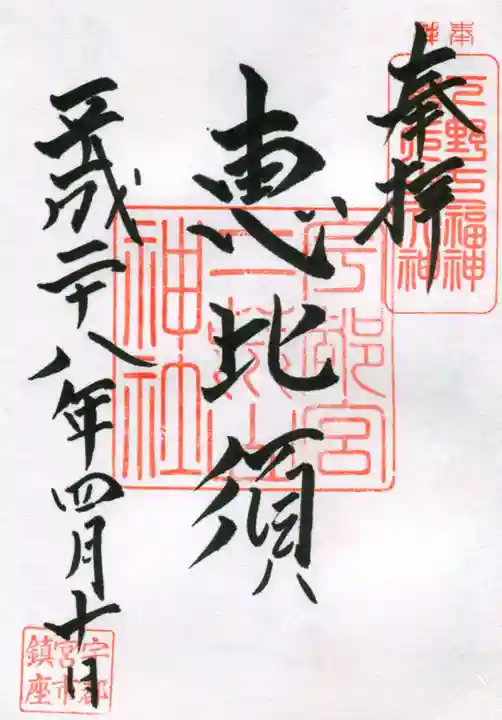 奉拝
恵比須
平成二十八年四月十日
宇都宮
二荒山
神社
宇都
宮市
鎮座